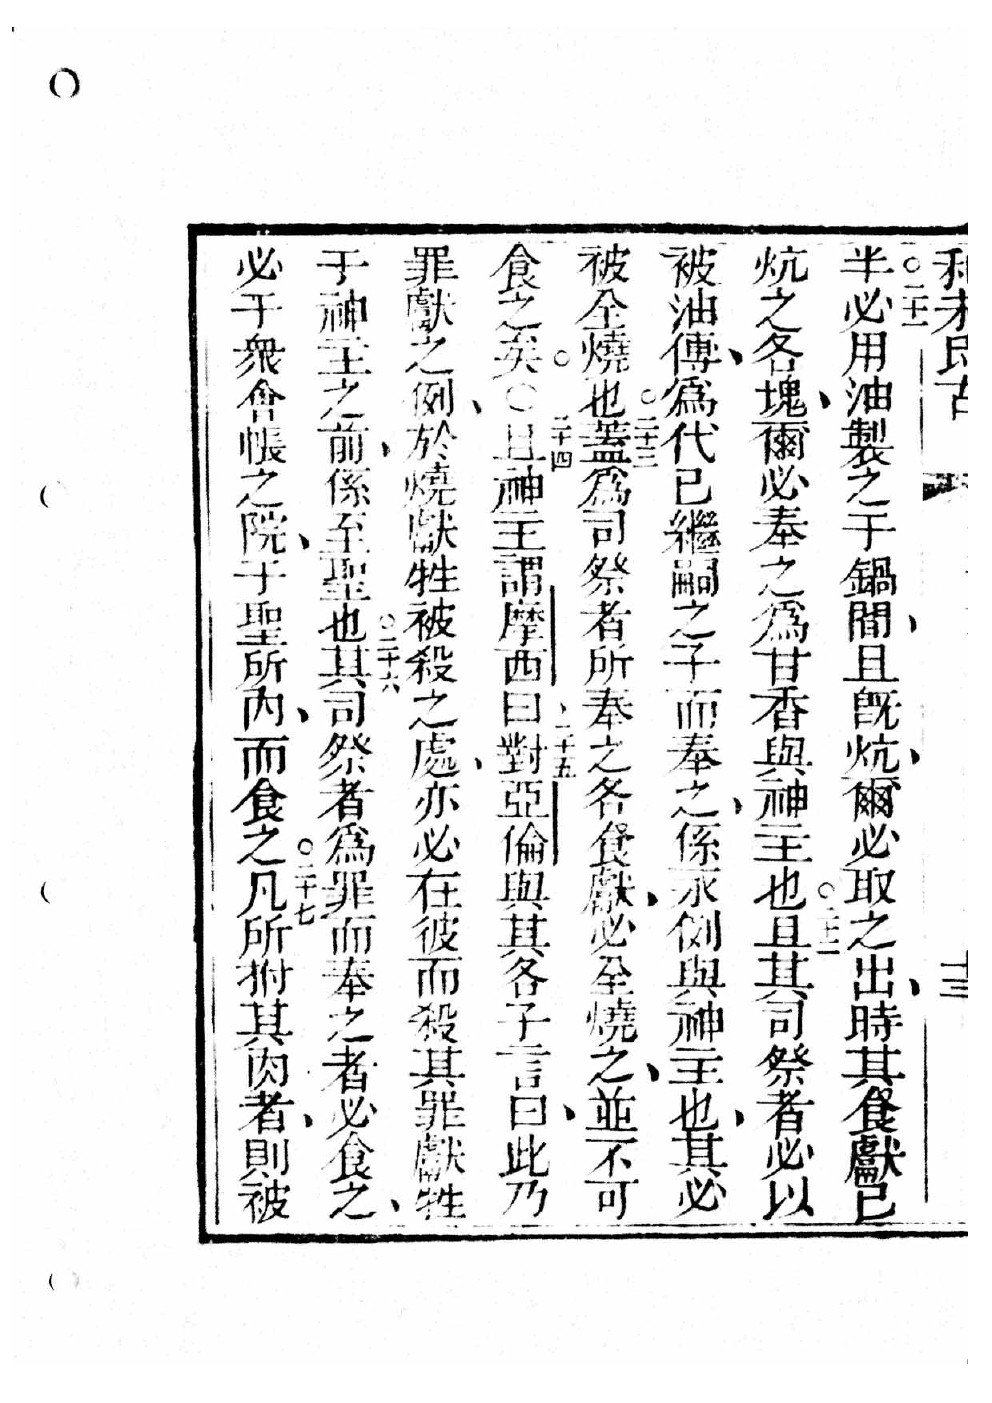 利未氏古 十三
半〇二十一必用油製之于鍋間、且旣炕、爾必取之出、時其食獻已
炕之各塊、爾必奉之爲甘香與神主也〇二十二且其司祭者必以
被油傅、爲代已繼嗣之子而奉之、係永例與神主也、其必
被全燒也〇二十三蓋爲司祭者所奉之各食獻、必全燒之、並不可
食之矣〇〇二十四且神主謂摩西曰、二十五對亞倫與其各子言曰、此乃
罪獻之例、於燒獻牲被殺之處、亦必在彼而殺其罪獻牲
于神主之前、係至聖也〇二十六其司祭者爲罪而奉之者必食之、
必于衆會帳之院、于聖所內、而食之〇二十七凡所拊其肉者、則被